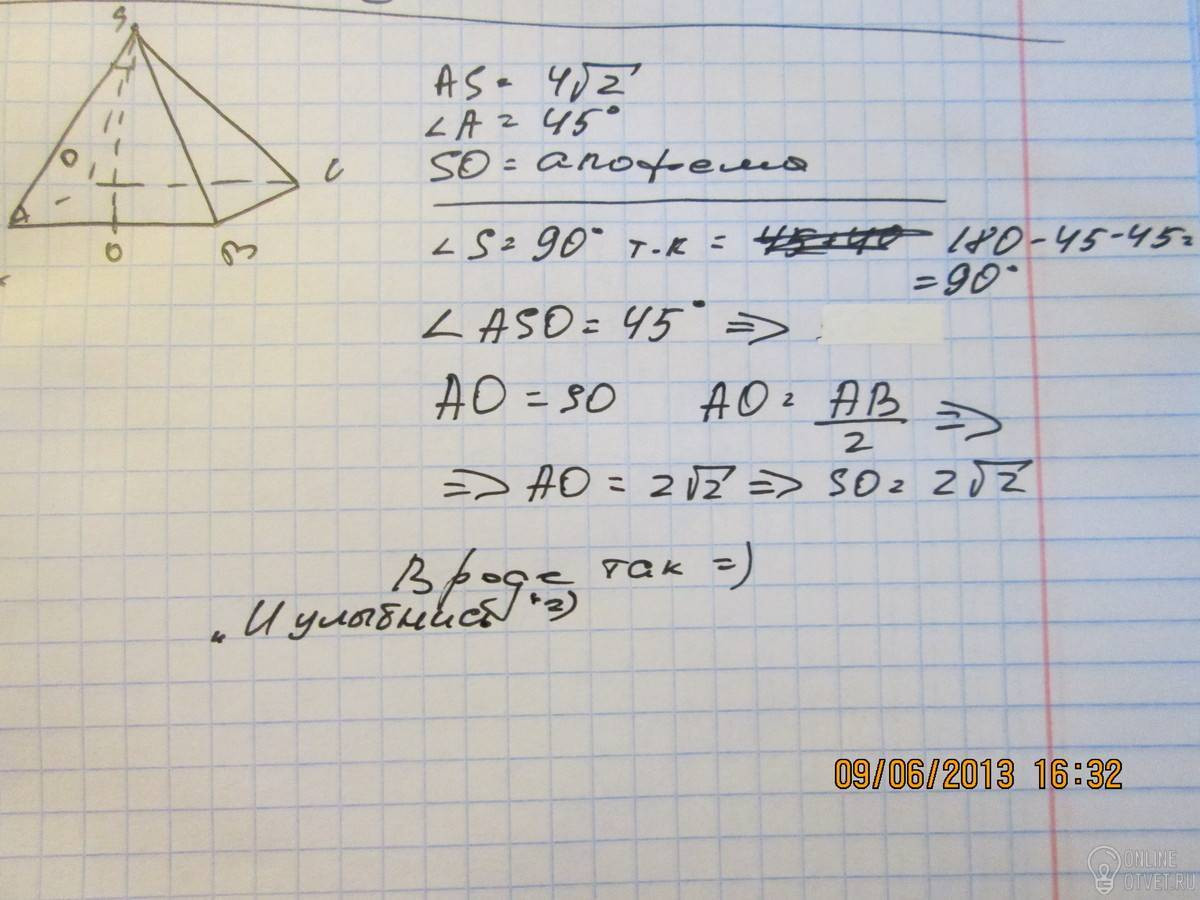 S
A
O
O
B
C
AS = 4√2
∠A = 45°
SO = апофема
∠S = 90° т.к = 180 - 45 - 45 =
= 90°
∠ASO = 45° =>
AO = SO AO = AB/2 =>
=> AO = 2√2 => SO = 2√2
Вроде так =)
"И улыбнись" =)
09/06/2013 16:32
ONLINE
OTVET.RU